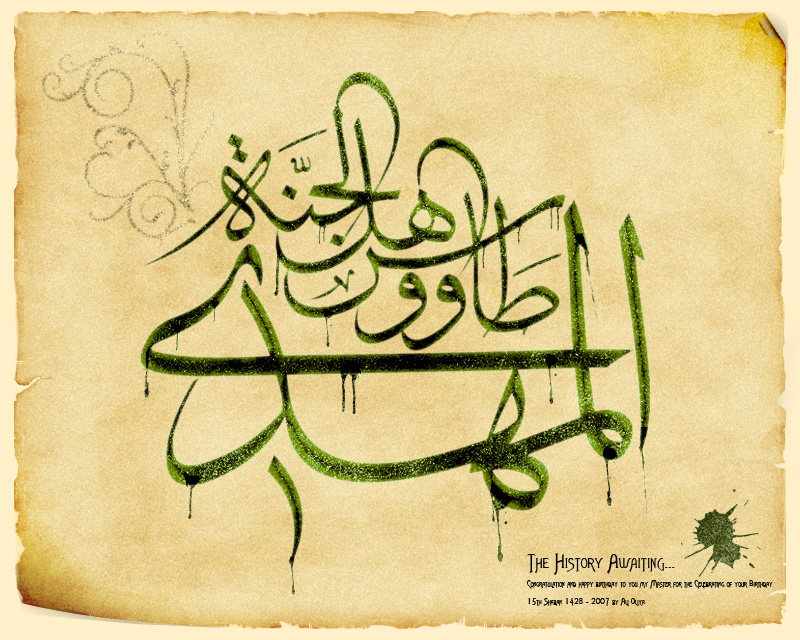 المهدى
طاووس أهل الجنّة
The History Awaiting...
Congratulation and happy birthday to you my Master for the Celebrating of your Birthday
15th Shaban 1428 - 2007 by Ali Oliya